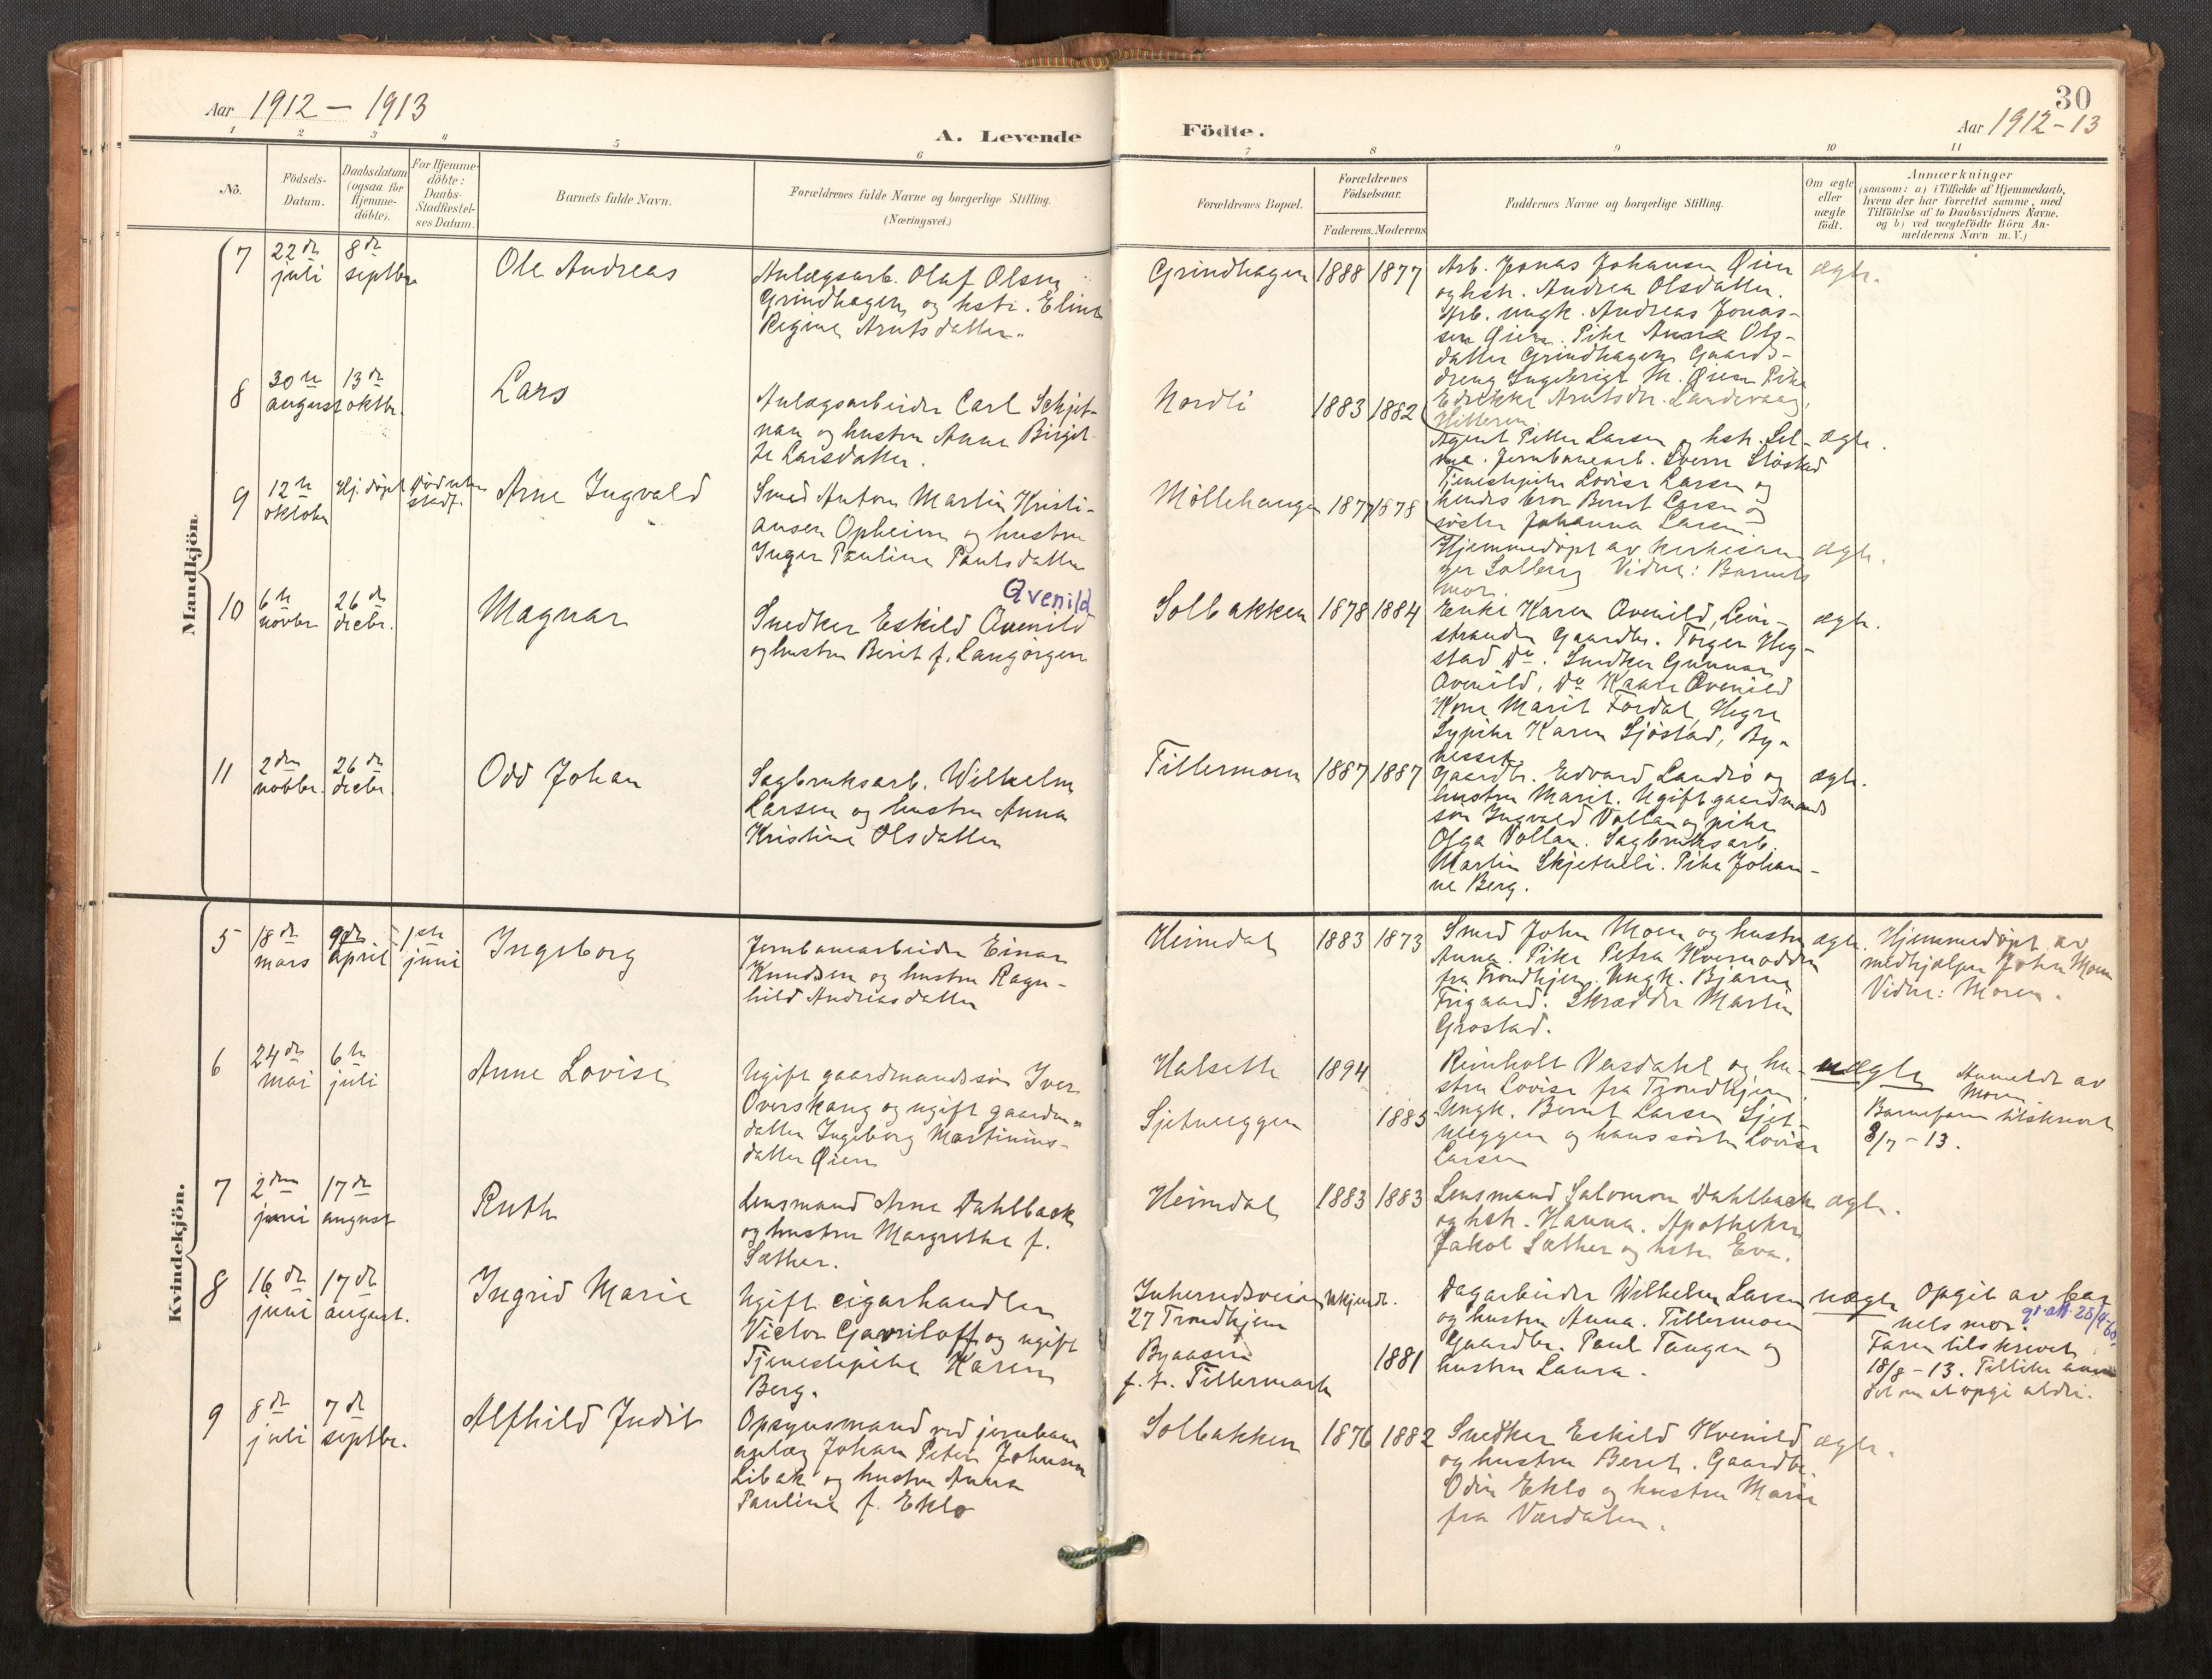 Aar 1912 – 1913
A. Levende
Födte.
30
Aar 1912 – 13
1
2
3
4
5
6
7
8
9
10
11
No.
Födsels-
Datum.
Daabsdatum
(ogsaa for
Hjemme-
döbte).
For Hjemme-
döbte:
Daabs-
Stadfæstel-
ses Datum.
Barnets fulde Navn.
Forældrenes fulde Navne og borgerlige Stilling.
(Næringsvei.)
Forældrenes Bopæl.
Forældrenes
Födselsaar.
Faderens.
Moderens
Faddernes Navne og borgerlige Stilling.
Om ægte
eller
uægte
födt.
Anmærkninger
(saasom: a) i Tilfælde af Hjemmedaab,
hvem der har forrettet samme, med
Tilföielse af to Daabsvidners Navne.
og b) ved uægtefödte Börn An-
melderens Navn m. V.)
Mandkjön.
7
22de
juli
8de
septbr
Ole Andreas
Anlægsarb. Olaf Olsen
Grindhagen og hstr. Eline
Regine Arntsdatter.
Grindhagen
1888
1877
Arb. Jonas Johansen Øien
og hstr. Andrea Olsdatter.
Arb. ungk. Andreas Jonas-
sen Øien. Pike Anna Ols-
datter Grindhagen Gaards-
dreng Ingebrigt M. Øien Pike
Arntsdtr.
Hitteren
ægte.
8
30te
august
13de
oktbr.
Lars
Anlægsarbeider Carl Schjet-
nan og hustru Anna Birgit-
te Larsdatter.
Nordli
1883
1882
Agent Petter Larsen og hstr. Sel-
Jernbanearb. Sverre Stöstad
Tjenestepike Lovise Larsen og
hendes bror Bernt Larsen og
söster Johanna Larsen
ægte.
9
12te
oktober
Hj. döpt
Död uten
stadf.
Arne Ingvald
Smed Anton Martin Kristi-
ansen Opheim og hustru
Inger Pauline Paulsdatter
Möllehaugen
1877
1878
Hjemmedöpt av kirkesan-
ger Solberg Vidne: Barnets
mor.
ægte.
10
6te
novbr
26de
decbr.
Magnar
Qvenild
Snedker Eskild Qvenild
og hustru Berit f. Langörgen
Solbakken
1878
1884
Enke Karen Qvenild, Lein-
stranden Gaardbr. Torger Heg-
stad Do. Snedker Gunnar
Qvenild, Do Kaare Qvenild
Kone Marit Fordal, Hegre
Sypike Karen Sjöstad, By-
nesset.
ægte.
11
2den
novbr.
26de
decbr.
Odd Johan
Sagbruksarb. Wilhelm
Larsen og hustru Anna
Kristine Olsdatter
Tillermoen
1887
1887
Gaardbr. Edvard Landrö og
hustru Marit. Ugift gaardmands
sön Ingvald Vollan og pike
Olga Vollan. Sagbruksarb.
Martin Skjetnelli. Pike Johan-
ne Berg.
ægte.
Kvindekjön.
5
18de
mars
9de
april
1ste
juni
Ingeborg
Jernbanearbeider Einar
Knudsen og hustru Ragn-
hild Andreasdatter
Heimdal
1883
1873
Smed John Moen og hustru
Anna. Pike Petra Kvernodden
fra Trondhjem. Ungk. Bjarne
Frigaard. Skrædder Martin
Grostad.
ægte.
Hjemmedöpt av
medhjælper John Moen
Vidne: Moren.
6
24de
mai
6te
juli
Anne Lovise
Ugift gaardmandssön Iver
Overskaug og ugift gaardm.-
datter Ingeborg Martinius-
datter Øien
Halseth
1894
Sjetneeggen
1885
Reinholt Vesdahl og hu-
stru Lovise fra Trondhjem.
Ungk. Bernt Larsen Sjet-
neeggen og hans söster Lovise
Larsen
uægte
Anmeldt av
Moren
Barnefaren tilskrevet
8/7 – 13.
7
2den
juni
17de
august
Ruth
Lensmand Arne Dahlback
og hustru Margrethe f.
Sæther.
Heimdal
1883
1883
Lensmand Salomon Dahlback
og hstr. Hanna. Apotheker
Jakob Sæther og hstr. Eva.
ægte.
8
16de
juni
17de
august.
Ingrid Marie
Ugift cigarhandler
Victor Gavriloff og ugift
Tjenestepike Karen
Berg.
Inherredsveien
27 Trondhjem
Ukjendt.
Byaasen
f. t. Tillermark
1881
Dagarbeider Wilhelm Larsen
og hustru Anna. Tillermoen
Gaardbr. Paul Tanger og
hustru Laura.
uægte
Opgit av bar-
nets mor.
28/4-60
Faren tilskrevet
18/8 – 13. Tillike anm
det om at opgi alder.
9
8de
juli
7de
septbr.
Alfhild Judit
Opsynsmand ved jernbane
anlæg Johan Peter Johnsen
Libak og hustru Anna
Pauline f. Eklo
Solbakken
1876
1882
Snedker Eskild Kvenild
og hustru Beret. Gaardbr.
Odin Eklo og hustru Marie
fra Værdalen.
ægte.